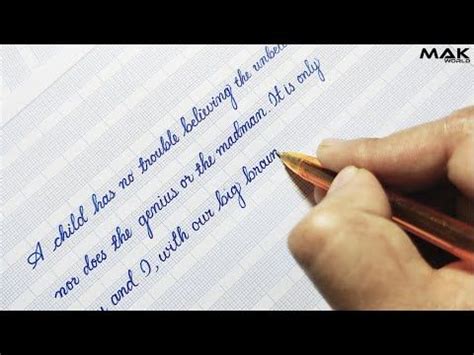 MAK
WORLD
A child has no trouble believing the unbel
nor does the genius or the madman. It is only
and I, with our big brain